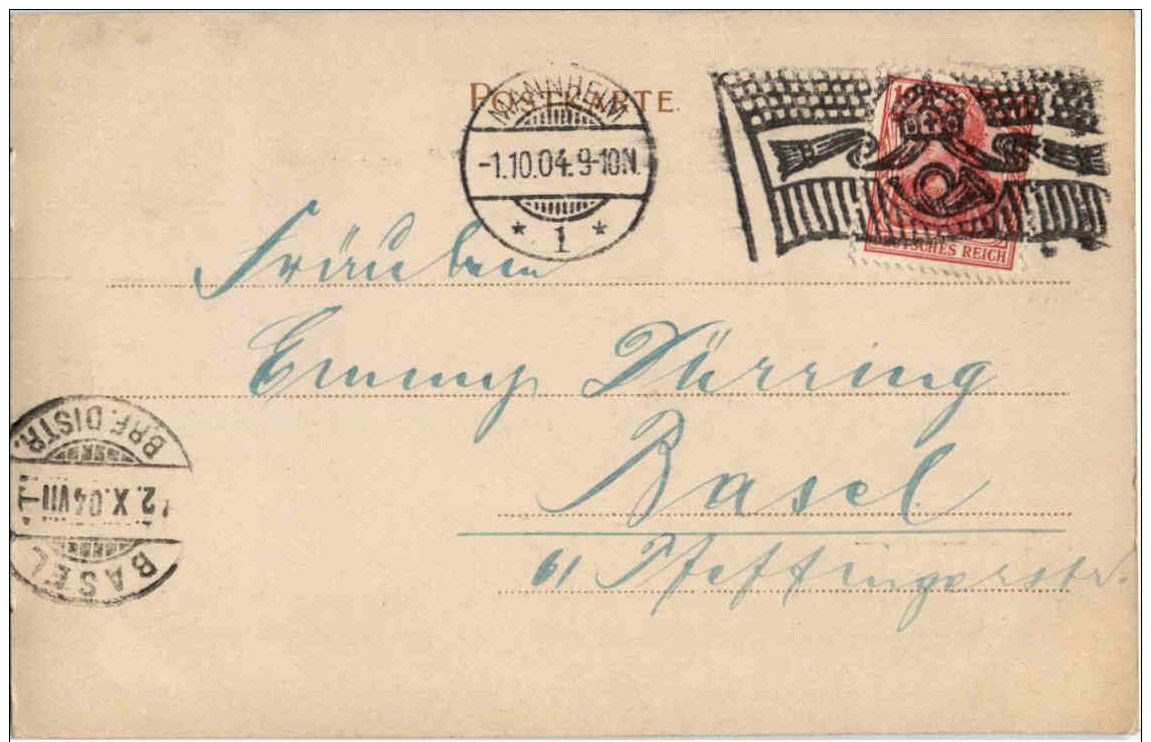 POSTKARTE.
MANNHEIM
-1.10.04.9-10N.
* 1 *
DEUTSCHES REICH
Fräulein
Emmy Dürring
Basel
61 Pfeffingerstr.
BRF. DISTR.
2.X.04 VII
BASEL